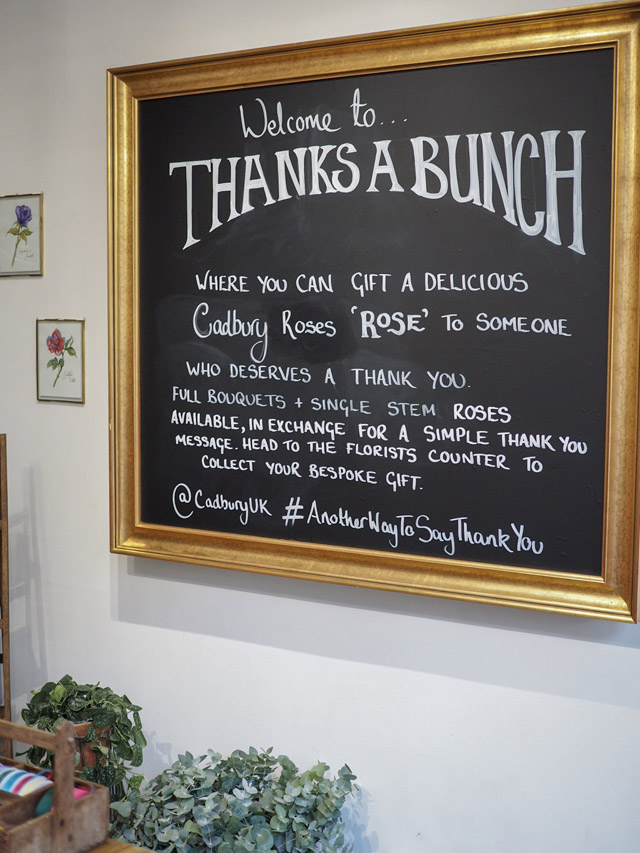 Welcome to...
THANKS A BUNCH
WHERE YOU CAN GIFT A DELICIOUS
Cadbury Roses 'ROSE' TO SOMEONE
WHO DESERVES A THANK YOU.
FULL BOUQUETS + SINGLE STEM ROSES
AVAILABLE, IN EXCHANGE FOR A SIMPLE THANK YOU
MESSAGE. HEAD TO THE FLORISTS COUNTER TO
COLLECT YOUR BESPOKE GIFT.
@CadburyUK #AnotherWayToSayThankYou